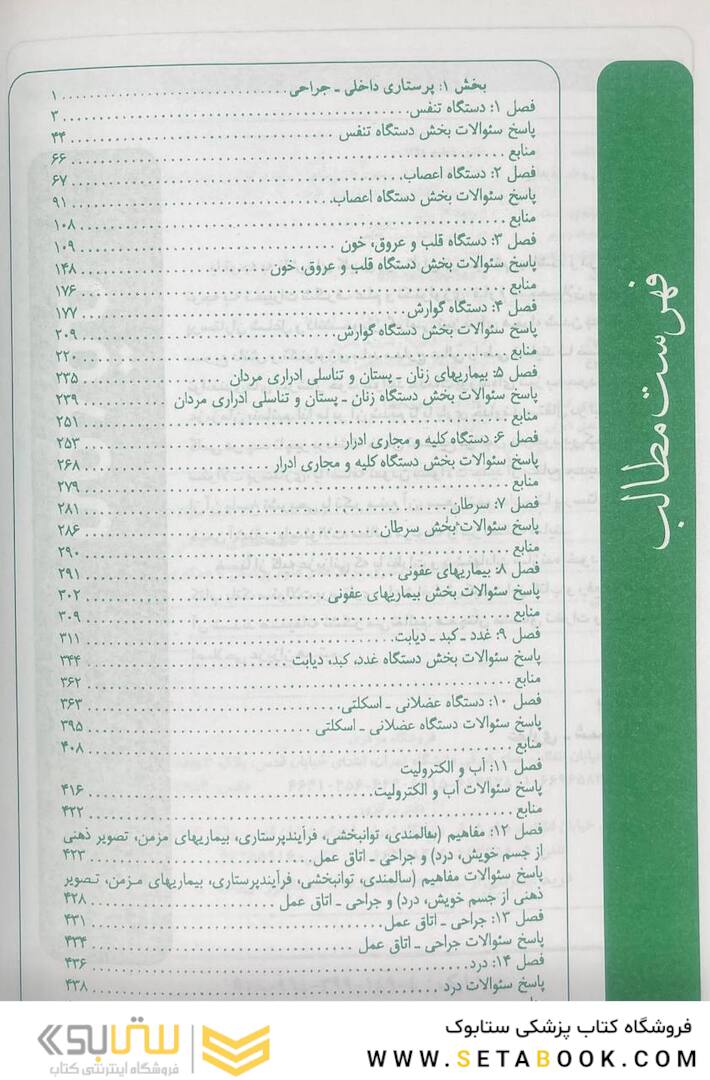 فهرست مطالب
بخش ۱: پرستاری داخلی ـ جراحی ۱
فصل ۱: دستگاه تنفس ۳
پاسخ سئوالات بخش دستگاه تنفس ۴۴
منابع ۶۶
فصل ۲: دستگاه اعصاب ۶۷
پاسخ سئوالات بخش دستگاه اعصاب ۹۱
منابع ۱۰۸
فصل ۳: دستگاه قلب و عروق، خون ۱۰۹
پاسخ سئوالات بخش دستگاه قلب و عروق، خون ۱۴۸
منابع ۱۷۶
فصل ۴: دستگاه گوارش ۱۷۷
پاسخ سئوالات بخش دستگاه گوارش ۲۰۹
منابع ۲۲۰
فصل ۵: بیماریهای زنان ـ پستان و تناسلی ادراری مردان ۲۳۵
پاسخ سئوالات بخش دستگاه زنان ـ پستان و تناسلی ادراری مردان ۲۳۹
منابع ۲۵۱
فصل ۶: دستگاه کلیه و مجاری ادرار ۲۵۳
پاسخ سئوالات بخش دستگاه کلیه و مجاری ادرار ۲۶۸
منابع ۲۷۹
فصل ۷: سرطان ۲۸۱
پاسخ سئوالات بخش سرطان ۲۸۶
منابع ۲۹۰
فصل ۸: بیماریهای عفونی ۲۹۱
پاسخ سئوالات بخش بیماریهای عفونی ۳۰۲
منابع ۳۰۹
فصل ۹: غدد ـ کبد ـ دیابت ۳۱۱
پاسخ سئوالات بخش دستگاه غدد، کبد، دیابت ۳۴۴
منابع ۳۶۲
فصل ۱۰: دستگاه عضلانی ـ اسکلتی ۳۶۳
پاسخ سئوالات دستگاه عضلانی ـ اسکلتی ۳۹۵
منابع ۴۰۸
فصل ۱۱: آب و الکترولیت
پاسخ سئوالات آب و الکترولیت ۴۱۶
منابع ۴۲۲
فصل ۱۲: مفاهیم (سالمندی، توانبخشی، فرآیندپرستاری، بیماریهای مزمن، تصویر ذهنی
از جسم خویش، درد) و جراحی ـ اتاق عمل ۴۲۳
پاسخ سئوالات مفاهیم (سالمندی، توانبخشی، فرآیندپرستاری، بیماریهای مزمن، تصویر
ذهنی از جسم خویش، درد) و جراحی ـ اتاق عمل ۴۲۸
فصل ۱۳: جراحی ـ اتاق عمل ۴۳۱
پاسخ سئوالات جراحی ـ اتاق عمل ۴۳۴
فصل ۱۴: درد ۴۳۶
پاسخ سئوالات درد ۴۳۸
فروشگاه کتاب پزشکی ستابوک
WWW.SETABOOK.COM
ستابوک
فروشگاه اینترنتی کتاب